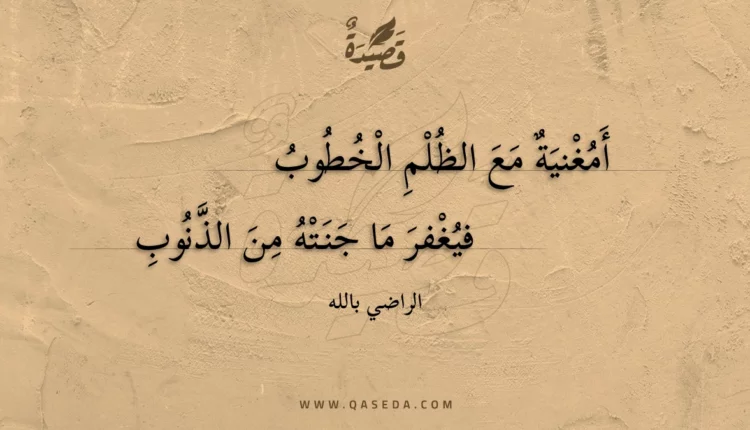 قَصِيدَةٌ
أَمُغْنيَةٌ مَعَ الظُلْمِ الْخُطُوبُ
فيُغْفرَ مَا جَنَتْهُ مِنَ الذَّنُوبِ
الراضي بالله
WWW.QASEDA.COM